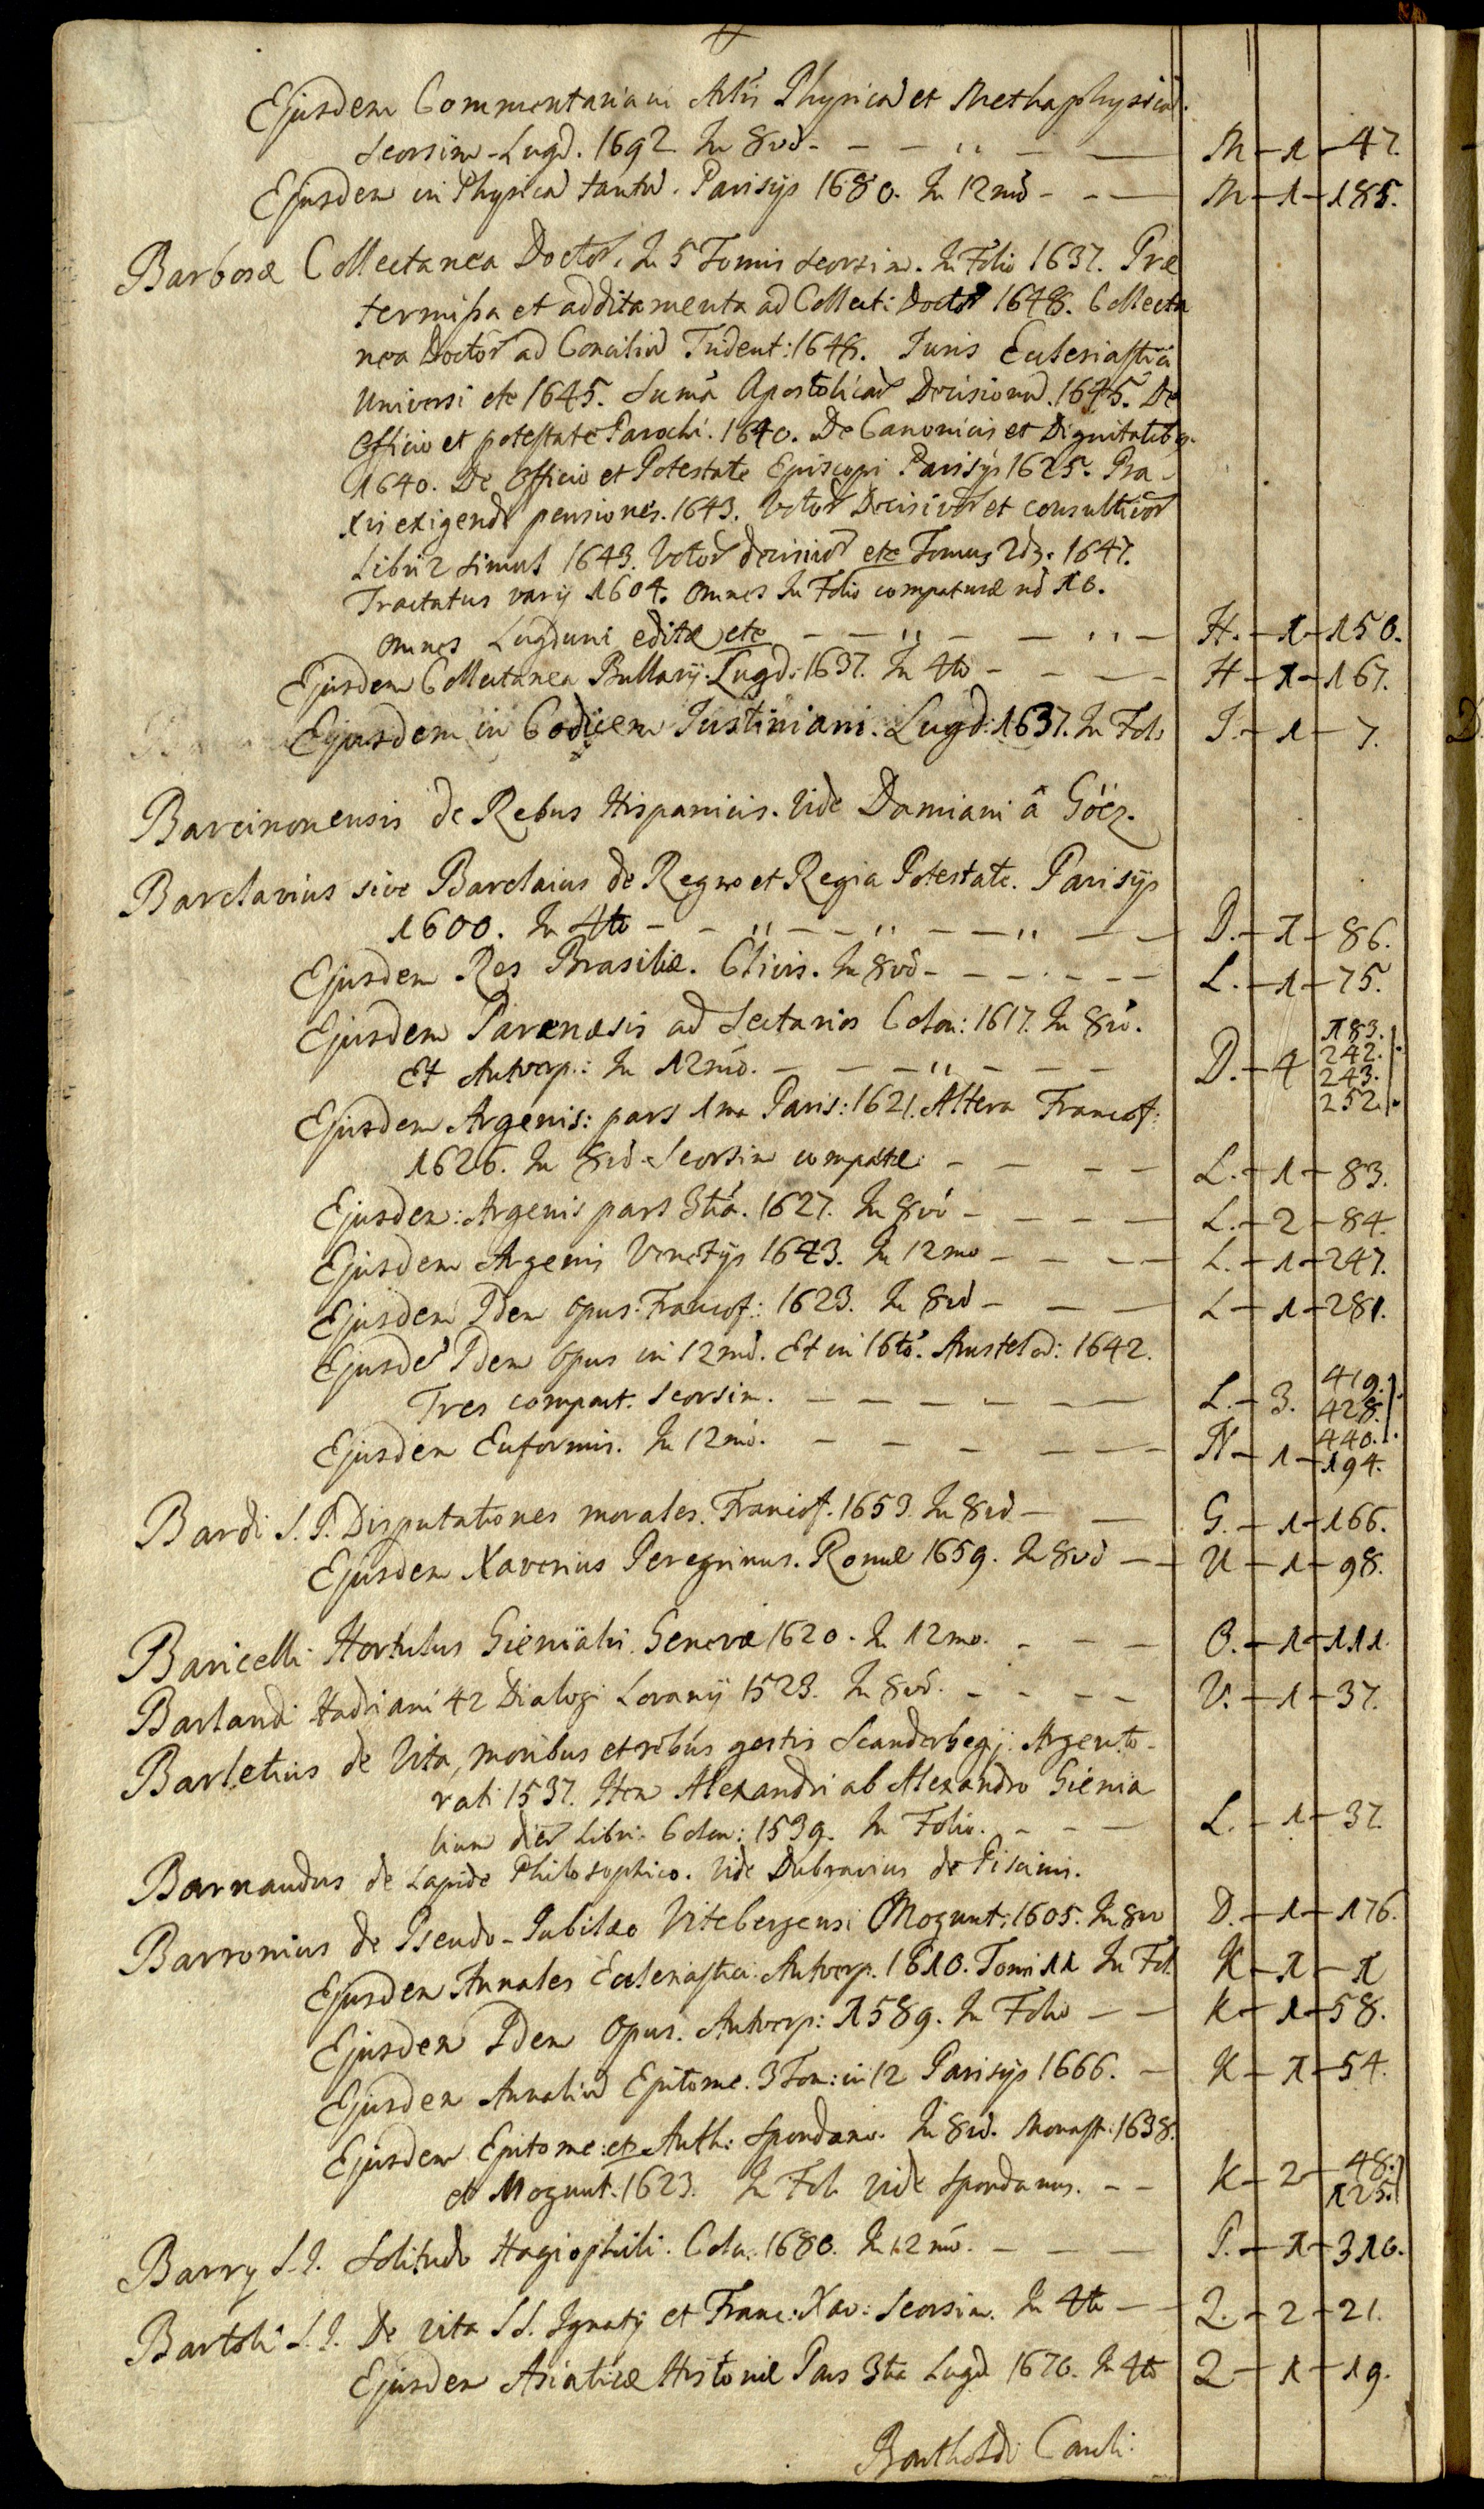 Ejusdem Commentaria in Artis Physicā et Methaphysicā.
Seorsim. Lugd. 1692 In 8vō - - - " - - M - 1 - 47.
Ejusdem in Physicā tantū. Parisijs 1680. In 12mō - - - M - 1 - 185.
Barbosæ Collectanea Doctor. In 5 Tomis seorsim. In Folio 1637. Præ
termissa et additamenta ad Collect: Doctor 1648. Collecta
nea Doctor ad Conciliū Trident: 1648. Juris Eclesiastici
Universi etc 1645. Suma Apostolicar Decisionū. 1645. De
Officio et potestate Parochi. 1640. De Canonicis et Dignitatibq.
1640. De Officio et Potestate Episcopi Parisijs 1625. Pra-
xis exigendi pensiones. 1643. Votor Decisivor et consultivor
Libri 2 simul 1643. Votor decisivor etc Tomus 2dq. 1647.
Tractatus varij 1604. omnes In Folio compacturæ nō 10.
omnes Lugduni editæ etc - - " - - " - H. - 1 - 150.
Ejusdem Collectanea Bullarij. Lugd: 1637. In 4to - - - H - 1 - 167.
Ejusdem in Codicem Justiniani. Lugd: 1637. In Fol. J. - 1 - 7.
Barcinonensis de Rebus Hispanicis. Vide Damiani â Göez.
Barclavius sive Barclaius de Regno et Regia Potestate. Parisijs
1600. In 4to - - " - - " - - " - - D. - 1 - 86.
Ejusdem Res Brasiliæ. Clivis. In 8vō - - - - - - L. - 1 - 75.
Ejusdem Parænesis ad Sectarios Colon: 1617. In 8vō.
Et Antverp.: In 12mō. - - - " - - - D. - 4 183. 242. 243. 252.
Ejusdem Argenis: pars 1ma Paris: 1621. Altera Francof:
1626. In 8vō Seorsim compactæ. - - - - L. - 1 - 83.
Ejusdem: Argenis pars 3tia. 1627. In 8vō - - - - L. - 2 - 84.
Ejusdem Argenis Venetijs 1643. In 12mo - - - - L. - 1 - 247.
Ejusdem Idem opus. Francof: 1623. In 8vō - - - L - 1 - 281.
Ejusdē Idem opus in 12mō. Et in 16tō. Amstelod: 1642.
Tres compact. seorsim. - - - - - - L. - 3. 419. 428. 440.
Ejusdem Euformis. In 12mō. - - - - - N - 1 - 194.
Bardi S. J. Disputationes morales. Francof. 1653. In 8vō - - G. - 1 - 166.
Ejusdem Xaverius Peregrinus. Romæ 1659. In 8vō - - U - 1 - 98.
Baricelli Hortulus Genialis Genevæ 1620. In 12mo. - - - O. - 1 - 111.
Barlandi Hadriani 42 Dialogi Lovanij 1523. In 8vō. - - - - V. - 1 - 37.
Barletius de Vita, moribus et rebus gestis Scanderbegij: Argento-
rati 1537. Item Alexandri ab Alexandro Genia
lium dier Libri. Colon: 1539. In Folio. - - - L. - 1 - 37.
Barnaudus de Lapide Philosophico. Vide Dubravius de Piscinis.
Barronius de Pseudo-Jubilæo Vitebergensi Mogunt: 1605. In 8vo D. - 1 - 176.
Ejusdem Annales Eclesiastici. Antverp. 1610. Tomi 11 In Fol. K - 1 - 1
Ejusdem Idem Opus. Antverp: 1589. In Folio - - K - 1 - 58.
Ejusdem Annaliū Epitome. 3 Tom: in 12 Parisijs 1666. - K - 1 - 54.
Ejusdem Epitome: et Auth: Spondano. In 8vō. Monast: 1638.
et Mogunt. 1623. In Fol. vide Spondanus. - - K - 2 - 48. 125.
Barry S. J. Solitudo Hagiophili. Colon. 1680. In 12mō. - - - P. - 1 - 310.
Bartoli S. J. De Vita SS. Ignatij et Franc: Xav: Seorsim. In 4to - - Q. - 2 - 21.
Ejusdem Asiaticæ Historiæ Pars 3tia Lugd. 1670. In 4to Q - 1 - 19.
Bartholdi Canli.